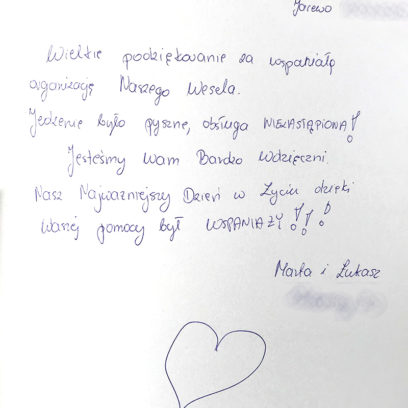 Jarewo
Wielkie podziękowanie za wspaniałą
organizację Naszego Wesela.
Jedzenie było pyszne, obsługa NIEZASTĄPIONA!
Jesteśmy Wam Bardzo wdzięczni.
Nasz Najważniejszy Dzień w Życiu dzięki
Waszej pomocy był WSPANIAŁY!!!
Marta i Łukasz